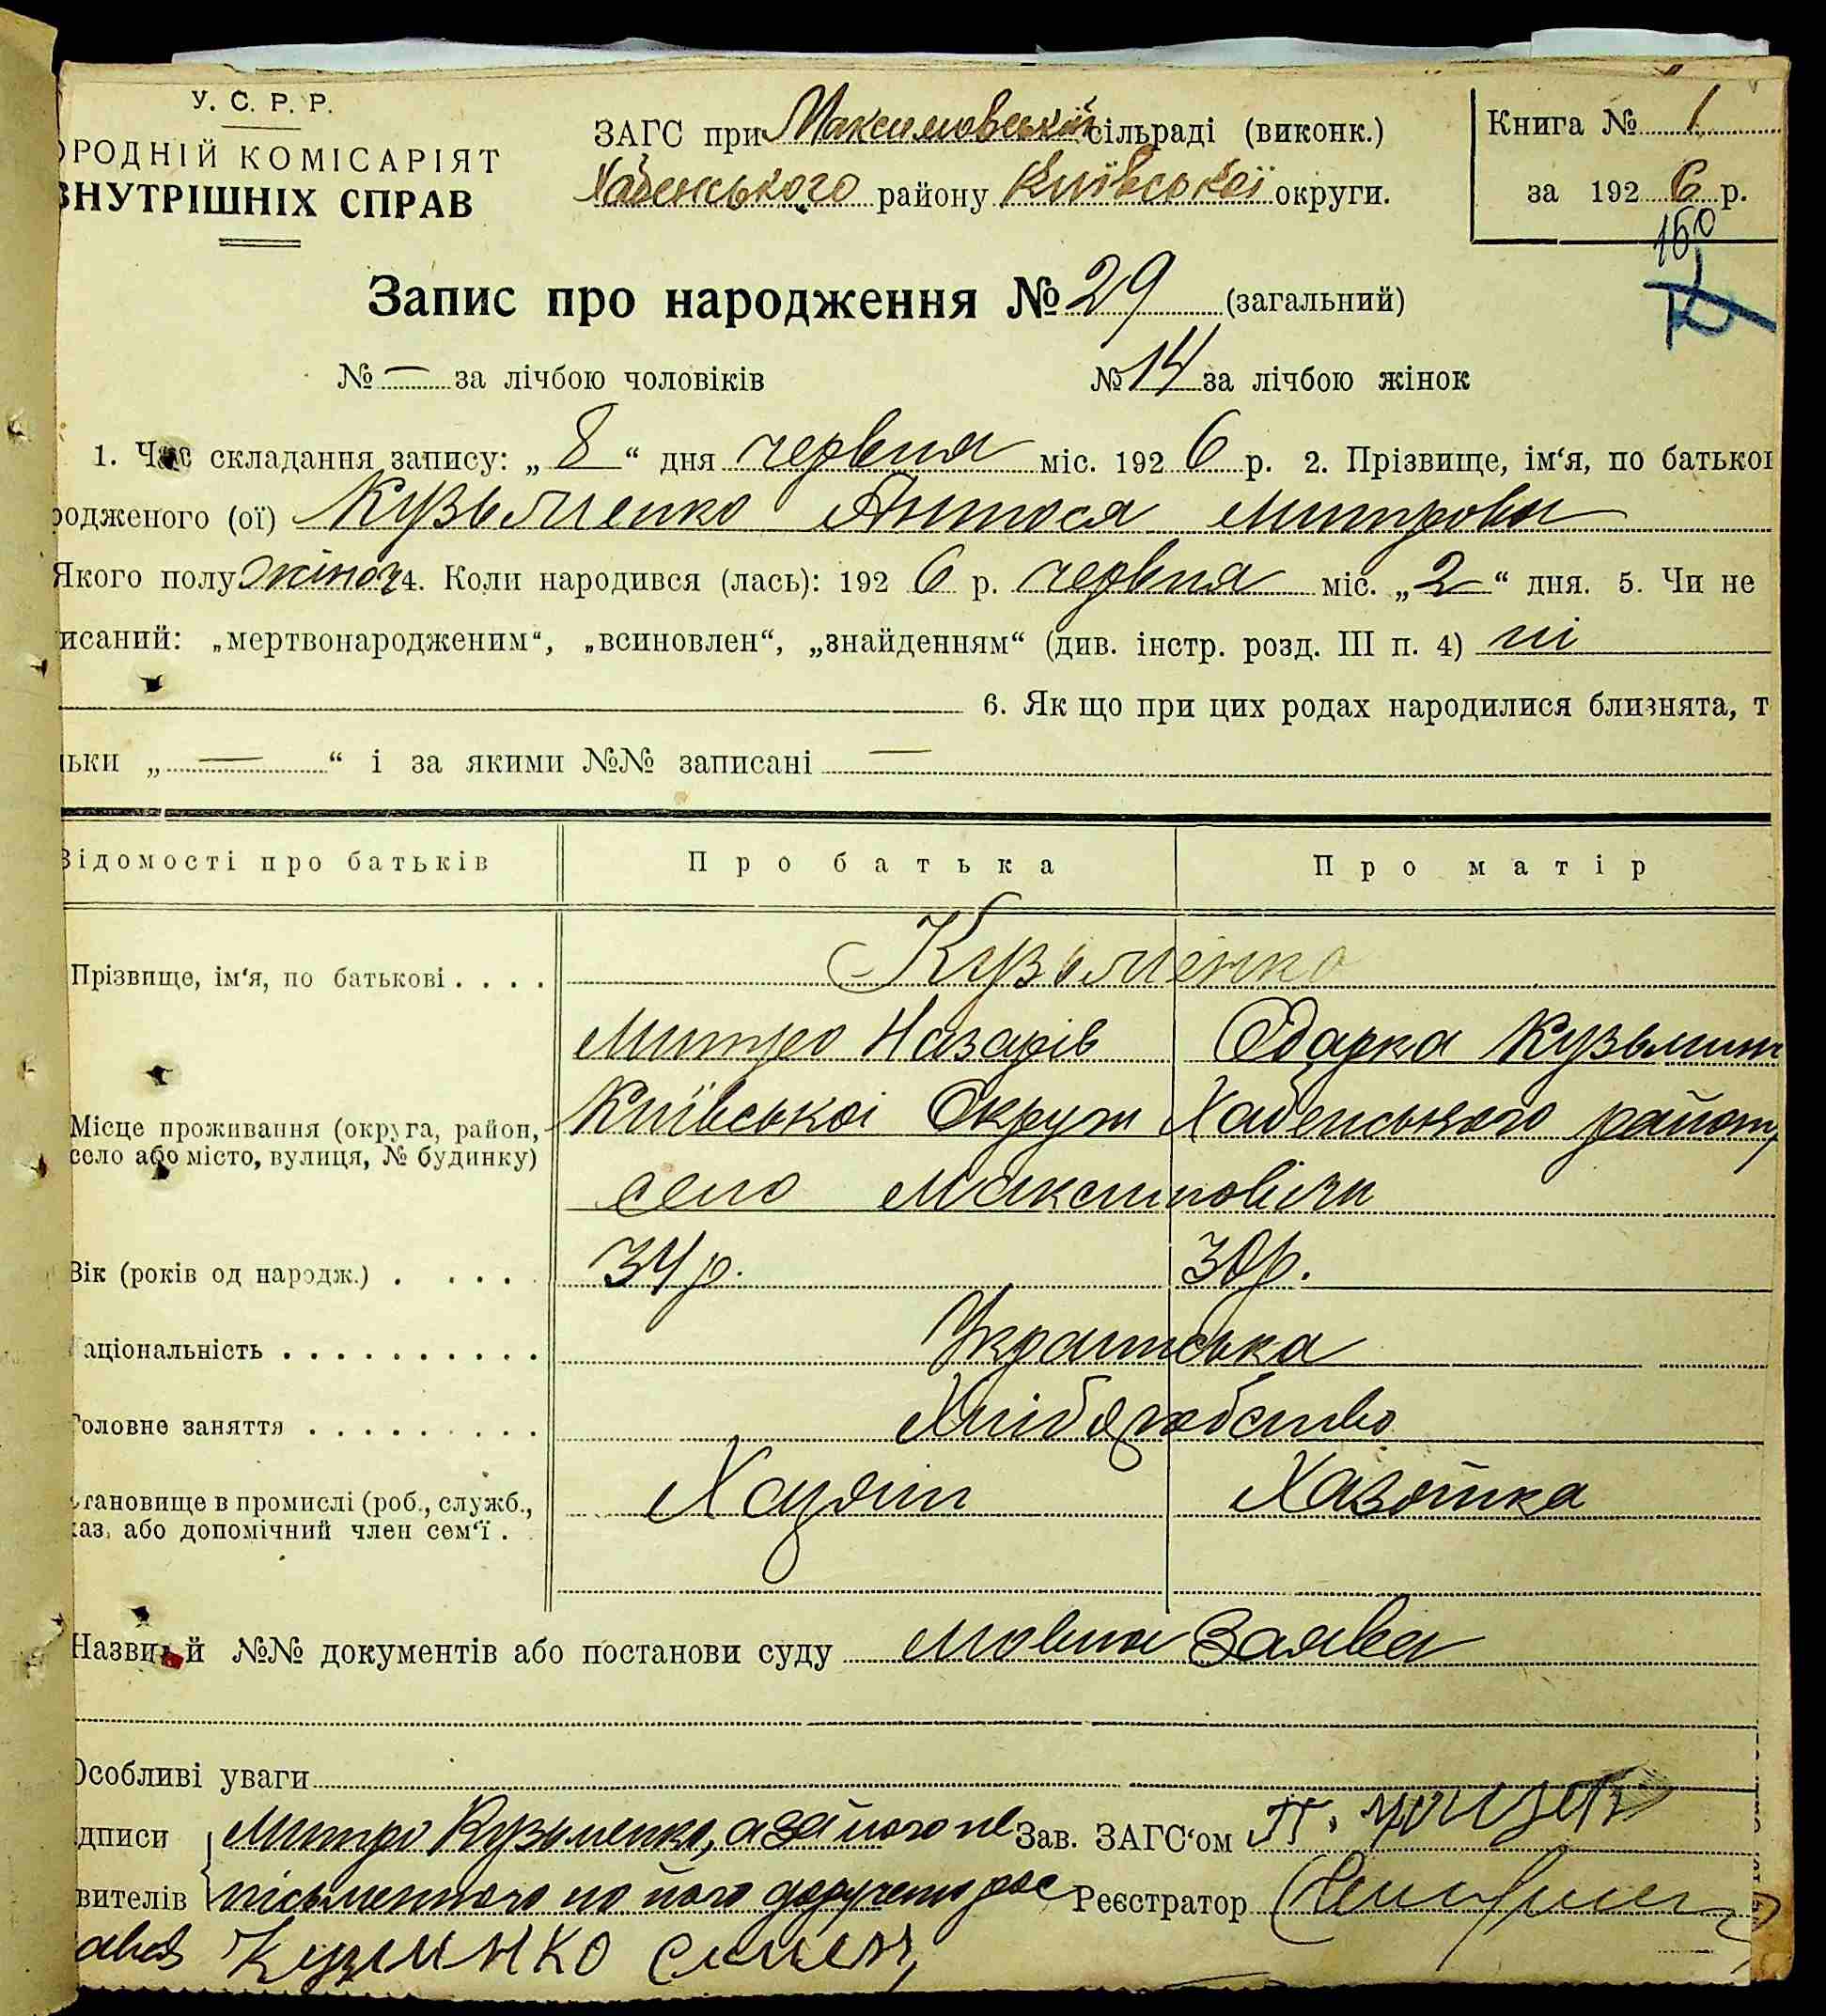 У. С. Р. Р.
ОРОДНІЙ КОМІСАРІЯТ
ВНУТРІШНІХ СПРАВ
ЗАГС при Максимовській сільраді (виконк.)
Хабенського району Київської округи.
Книга № 1
за 1926 р.
160
Запис про народження № 29 (загальний)
№ — за лічбою чоловіків № 14 за лічбою жінок
1. Час складання запису: „8“ дня червня міс. 1926 р. 2. Прізвище, ім‘я, по батькові
родженого (ої) Кузьменко Антося Митрова
Якого полу жіноч 4. Коли народився (лась): 1926 р. червня міс. „2“ дня. 5. Чи не
исаний: „мертвонародженим“, „всиновлен“, „знайденням“ (див. інстр. розд. III п. 4) ні
6. Як що при цих родах народилися близнята, т
льки „—“ і за якими №№ записані —
Відомості про батьків Про батька Про матір
Прізвище, ім‘я, по батькові . . . . Кузьменко
Митро Назарів Одарка Кузьмин
Місце проживання (округа, район, село або місто, вулиця, № будинку) Київської Округи Хабенського району
село Максимовичи
Вік (років од народж.) . . . . . 34 р. 30 р.
аціональність . . . . . . . . . . Українська
Головне заняття . . . . . . . . . Хліборобство
тановище в промислі (роб., служб., Хазяїн Хазяйка
аз, або допомічний член сем‘ї .
Назви й №№ документів або постанови суду мовна Заява
Особливі уваги
дписи Митро Кузьменко, а за його не Зав. ЗАГС‘ом
вителів письменного по його доручению рос Реєстратор
Кузминко Симен,